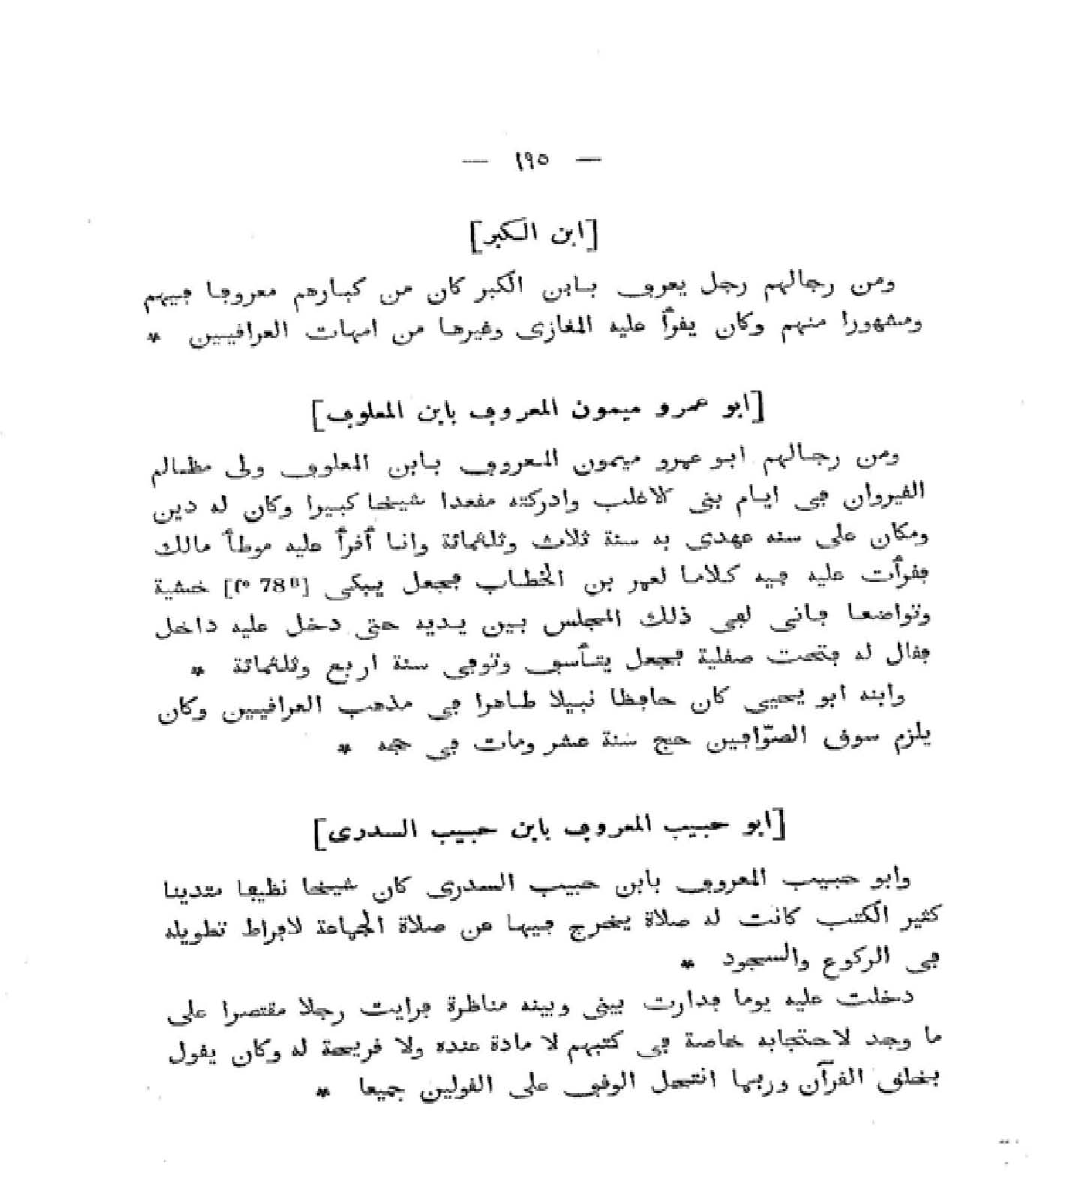 — ١٩٥ —
[ابن الكبر]
ومن رجالهم رجل يعرف بابن الكبر كان من كبارهم معروفا فيهم
ومشهورا منهم وكان يقرأ عليه المغازى وغيرها من امهات العراقيين *
[ابو عمرو ميمون المعروف بابن المعلوف]
ومن رجالهم ابو عمرو ميمون المعروف بابن المعلوف ولى مظالم
القيروان فى ايام بنى الاغلب وادركته مقعدا شيخا كبيرا وكان له دين
ومكان على سنه عهدى به سنة ثلاث وثلثمائة وانا أقرأ عليه موطأ مالك
فقرأت عليه فيه كلاما لعمر بن الخطاب فجعل يبكى [f° 78ᴮ] خشية
وتواضعا فانى لفى ذلك المجلس بين يديه حتى دخل عليه داخل
فقال له فتحت صقلية فجعل يتأسف وتوفى سنة اربع وثلثمائة *
وابنه ابو يحيى كان حافظا نبيلا طاهرا فى مذهب العراقيين وكان
يلزم سوق الصوّافين حج سنة عشر ومات فى حجه *
[ابو حبيب المعروف بابن حبيب السدرى]
وابو حبيب المعروف بابن حبيب السدرى كان شيخا نظيفا متدينا
كثير الكتب كانت له صلاة يخرج فيها عن صلاة الجماعة لافراط تطويله
فى الركوع والسجود *
دخلت عليه يوما فدارت بينى وبينه مناظرة فرايت رجلا مقتصرا على
ما وجد لاحتجابه خاصة فى كتبهم لا مادة عنده ولا قريحة له وكان يقول
بخلق القرآن وربما انتحل الوقف على القولين جميعا *